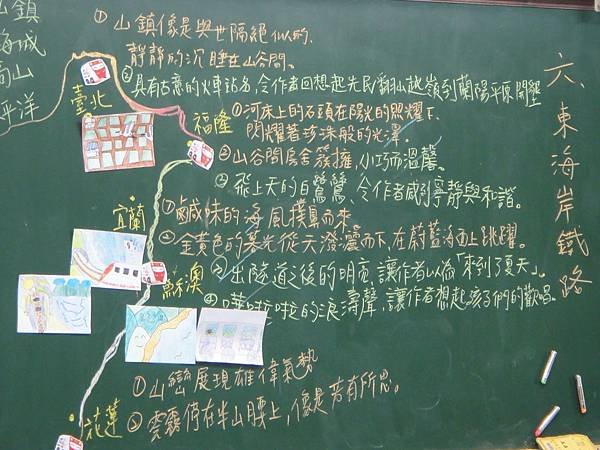 六、東海岸鐵路
山鎮
海城
高山
平洋
①山鎮像是與世隔絕似的,
靜靜的沉睡在山谷間。
②具有古意的火車站名,令作者回想起先民翻山越嶺到蘭陽平原開墾
臺北
福隆
①河床上的石頭在陽光的照耀下,
閃耀著珍珠般的光澤。
②山谷間房舍簇擁,小巧而溫馨。
③飛上天的白鷺鷥、令作者感到寧靜與和諧。
宜蘭
①鹹味的海風撲鼻而來
②金黃色的暮光從天潑灑而下,在蔚藍海面上跳躍。
蘇澳
③出隧道之後的明亮,讓作者以為「來到了夏天」。
④嘩啦啦的浪濤聲,讓作者想起孩子們的歡唱。
①山巒展現雄偉氣勢
②雲霧停在半山腰上,像是若有所思。
花蓮